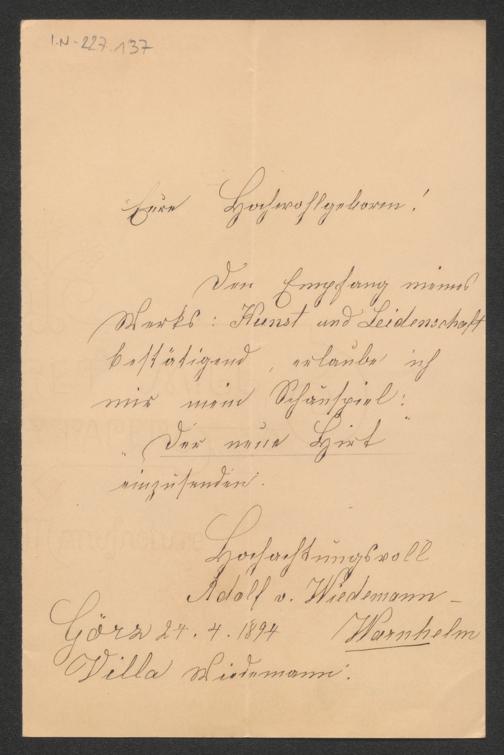 I.N-227.137
Eure Hochwohlgeboren!
Den Empfang meines
Werks: Kunst und Leidenschaft
bestätigend, erlaube ich
mir mein Schauspiel:
"Der neue Hirt"
einzusenden.
Hochachtungsvoll
Adolf v. Wiedemann-
Görz 24.4.1894 Warnhelm
Villa Wiedemann.